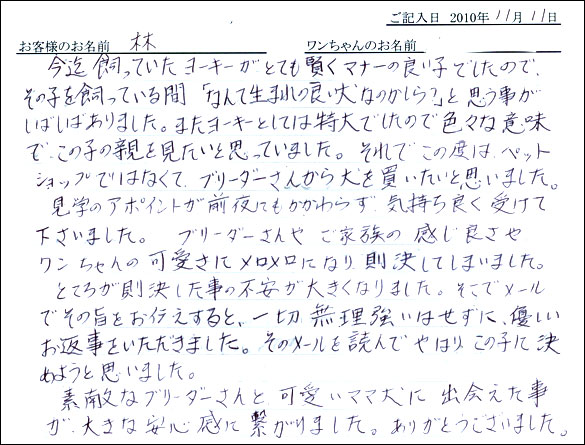 ご記入日 2010年 11月 11日
お客様のお名前 林 ワンちゃんのお名前
今迄 飼っていた ヨーキーが とても 賢く マナーの良い子 でしたので、
その子を飼っている間 「なんて生まれの良い犬なのかしら?」と思う事が
しばしばありました。またヨーキーとしては特大でしたので色々な意味
で、この子の親を見たいと思っていました。それでこの度は、ペット
ショップではなくて、ブリーダーさんから犬を買いたいと思いました。
見学のアポイントが前夜にもかかわらず 気持ち良く 受けて
下さいました。 ブリーダーさんや ご家族の 感じ良さや
ワンちゃんの可愛さにメロメロになり 則決してしまいました。
ところが則決した事の不安が大きくなりました。そこでメール
でその旨をお伝えすると、一切 無理強いはせずに、優しい
お返事をいただきました。そのメールを読んで やはり この子に 決
めようと思いました。
素敵なブリーダーさんと 可愛いママ犬に 出会えた事
が、大きな安心感に 繋がりました。ありがとうございました。